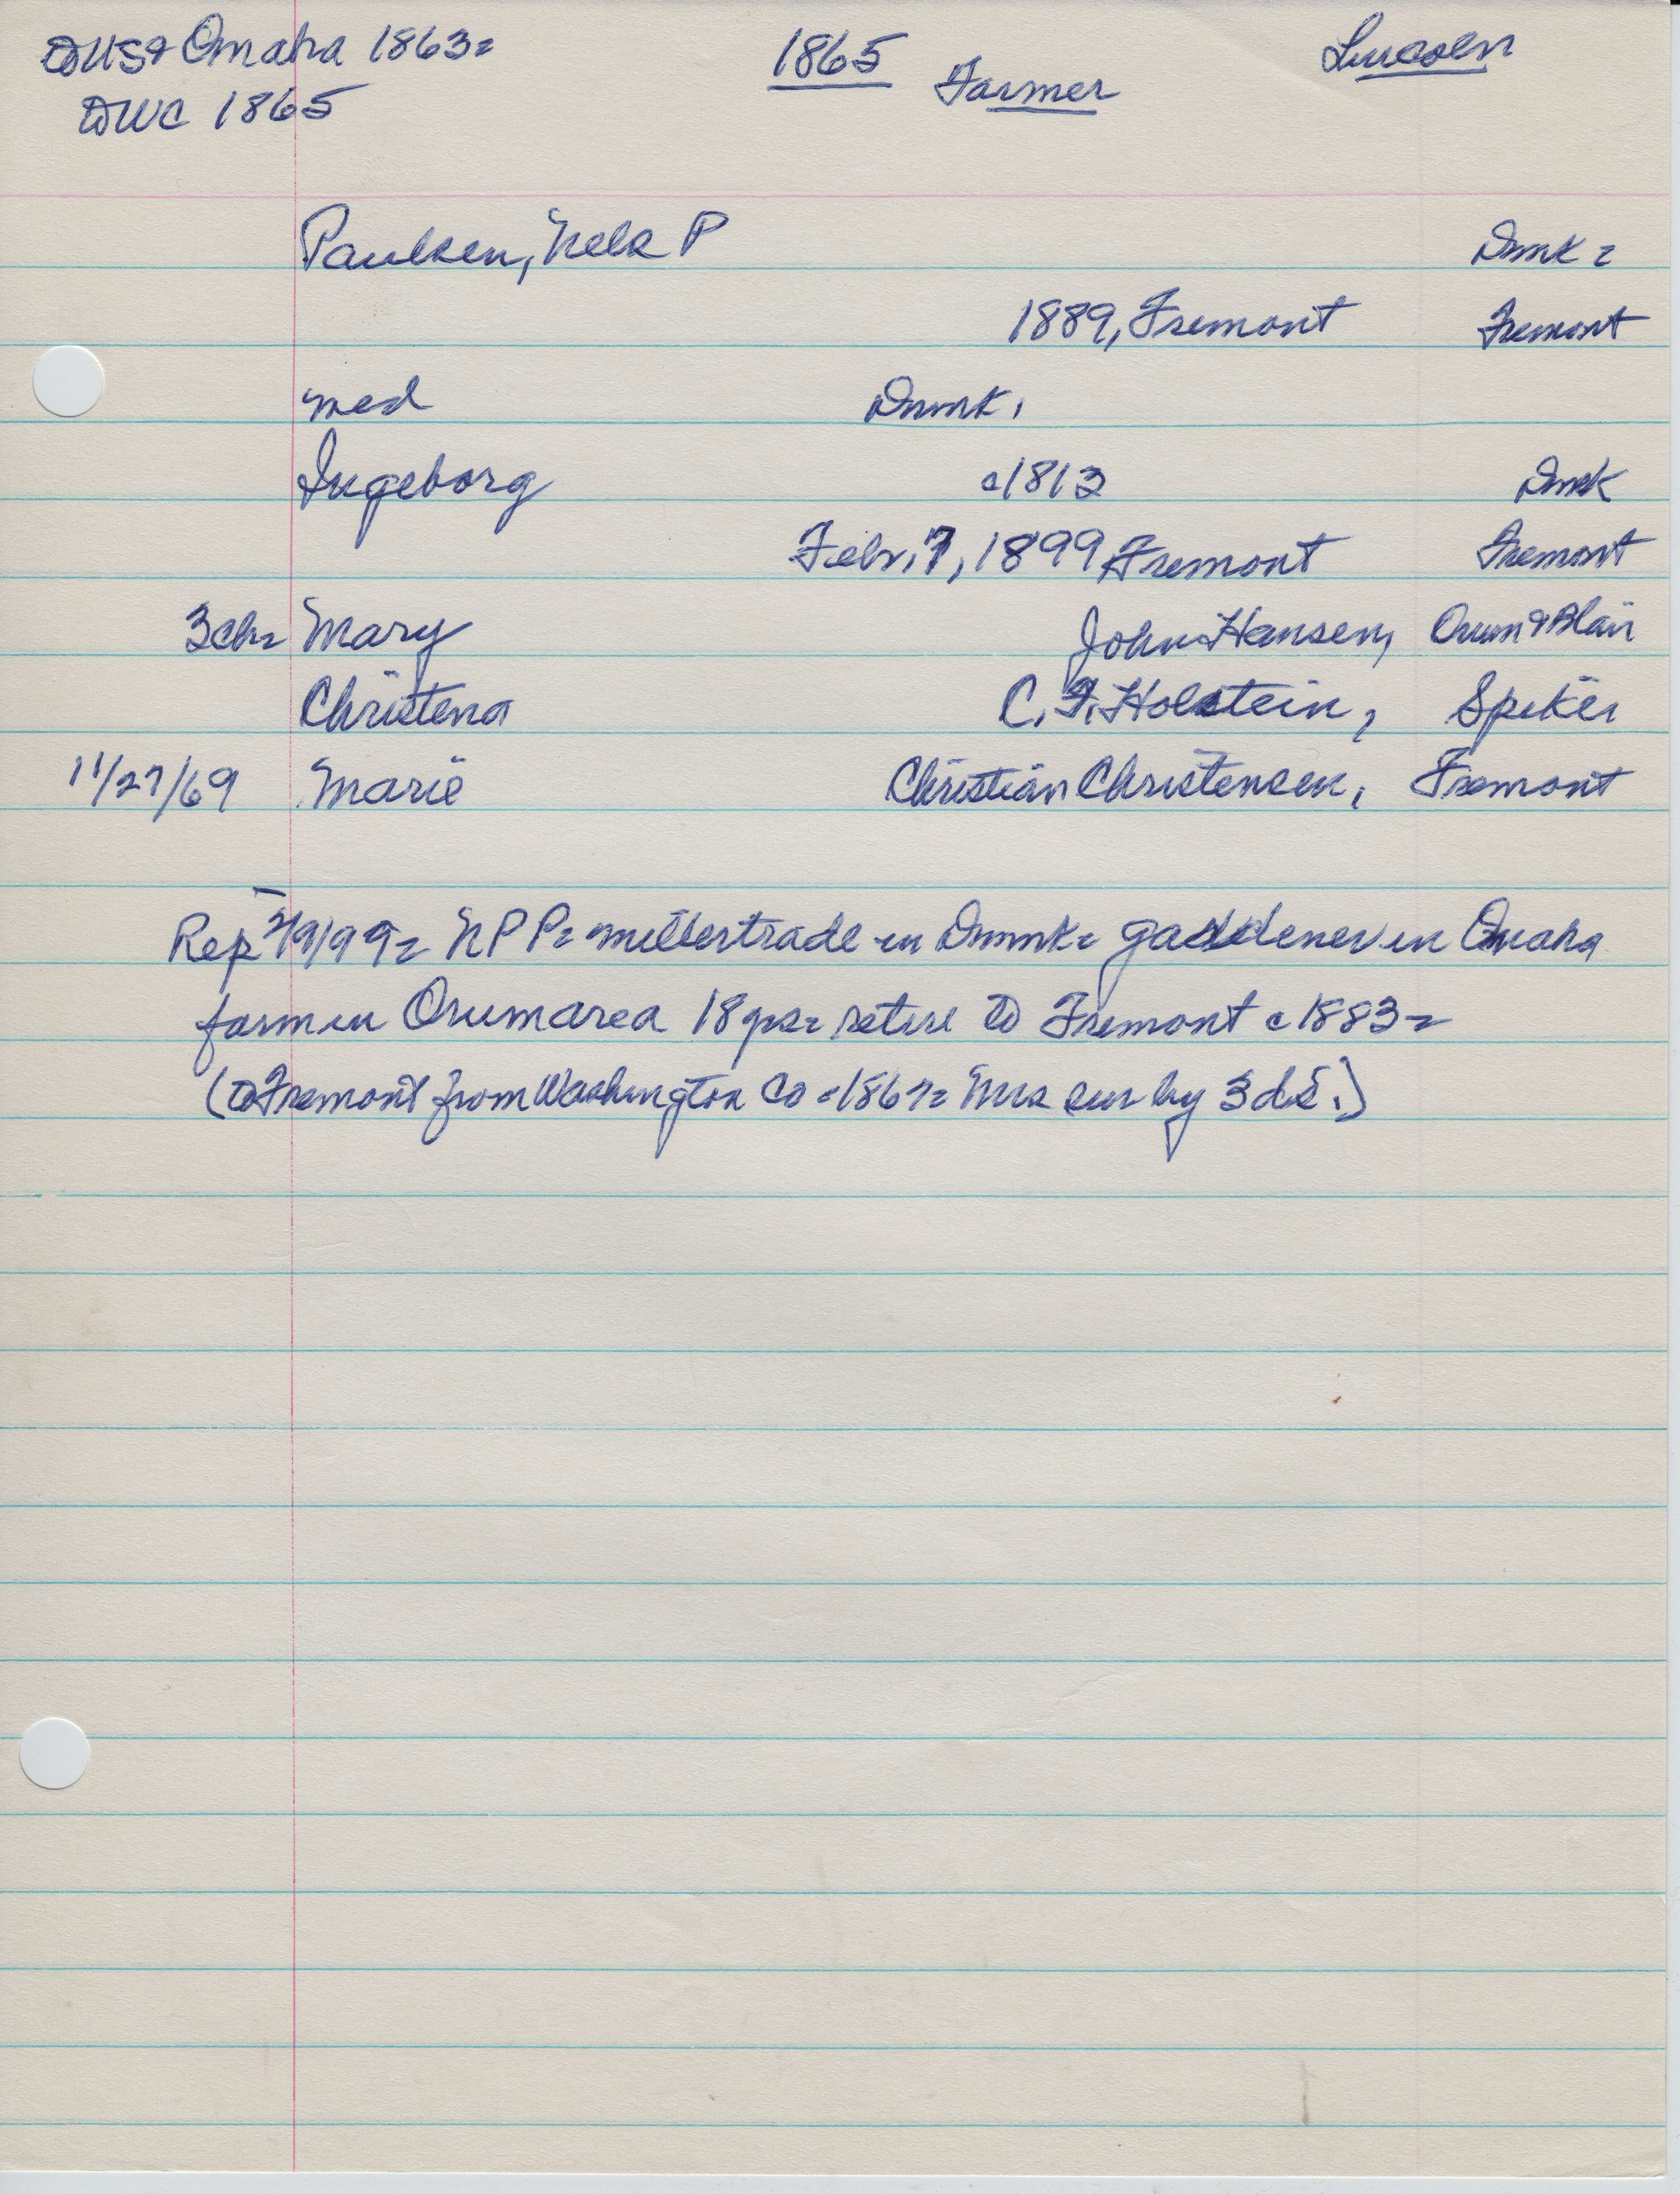 to US & Omaha 1863= 1865 Farmer Lincoln
to WC 1865
Paulsen, Nels P Dnmk =
1889, Fremont Fremont
med Dnmk.
Ingeborg c1813 Dmk
Febr. 7, 1899 Fremont Fremont
3 ch= Mary John Hansen, Orum & Blair
Christena C. F. Holstein, Spiker
11/27/69 Marie Christian Christensen, Fremont
Rep 2/9/99= N P P= miller trade in Dnmk= gardener in Omaha
farm in Orum area 18 yrs= retire to Fremont c 1883=
(to Fremont from Washington Co c1867= Mrs sur by 3 ds.)